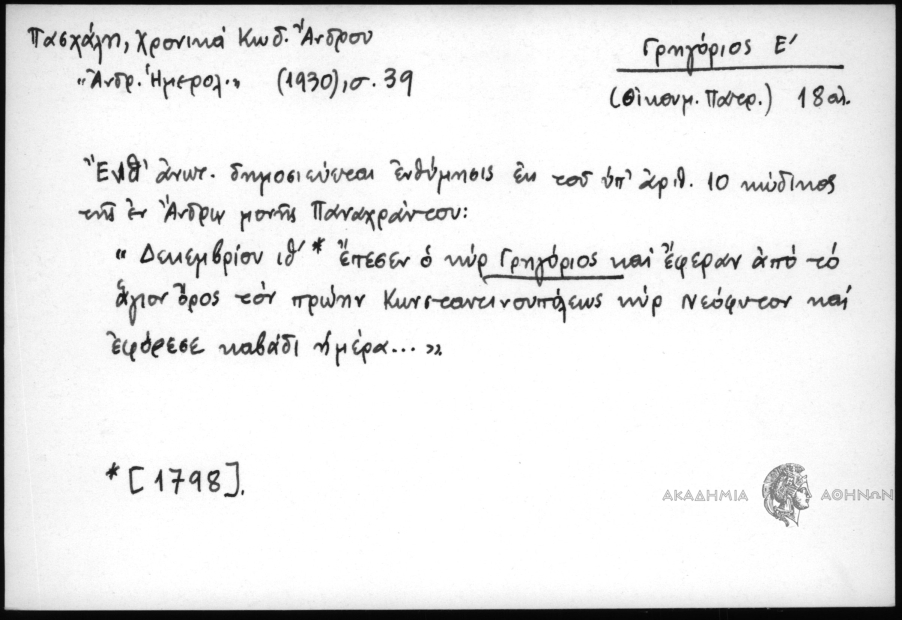 Πασχάλη, Χρονικά Κωδ. Ἄνδρου
"Ἀνδρ. Ἡμερολ." (1930), σ. 39
Γρηγόριος Ε'
(Οἰκουμ. Πατρ.) 18 αἰ.
Ἔνθ' ἀνωτ. δημοσιεύεται ἐνθύμησις ἐκ τοῦ ὑπ' ἀριθ. 10 κώδικος
τῆς ἐν Ἄνδρῳ μονῆς Παναχράντου:
« Δεκεμβρίου ιθ' * ἔπεσεν ὁ κὺρ Γρηγόριος καί ἔφεραν ἀπό τό
ἅγιον Ὄρος τόν πρώην Κωνσταντινουπόλεως κύρ Νεόφυτον καί
ἐφόρεσε καβάδι ἡμέρα... »
* [1798].
ΑΚΑΔΗΜΙΑ ΑΘΗΝΩΝ